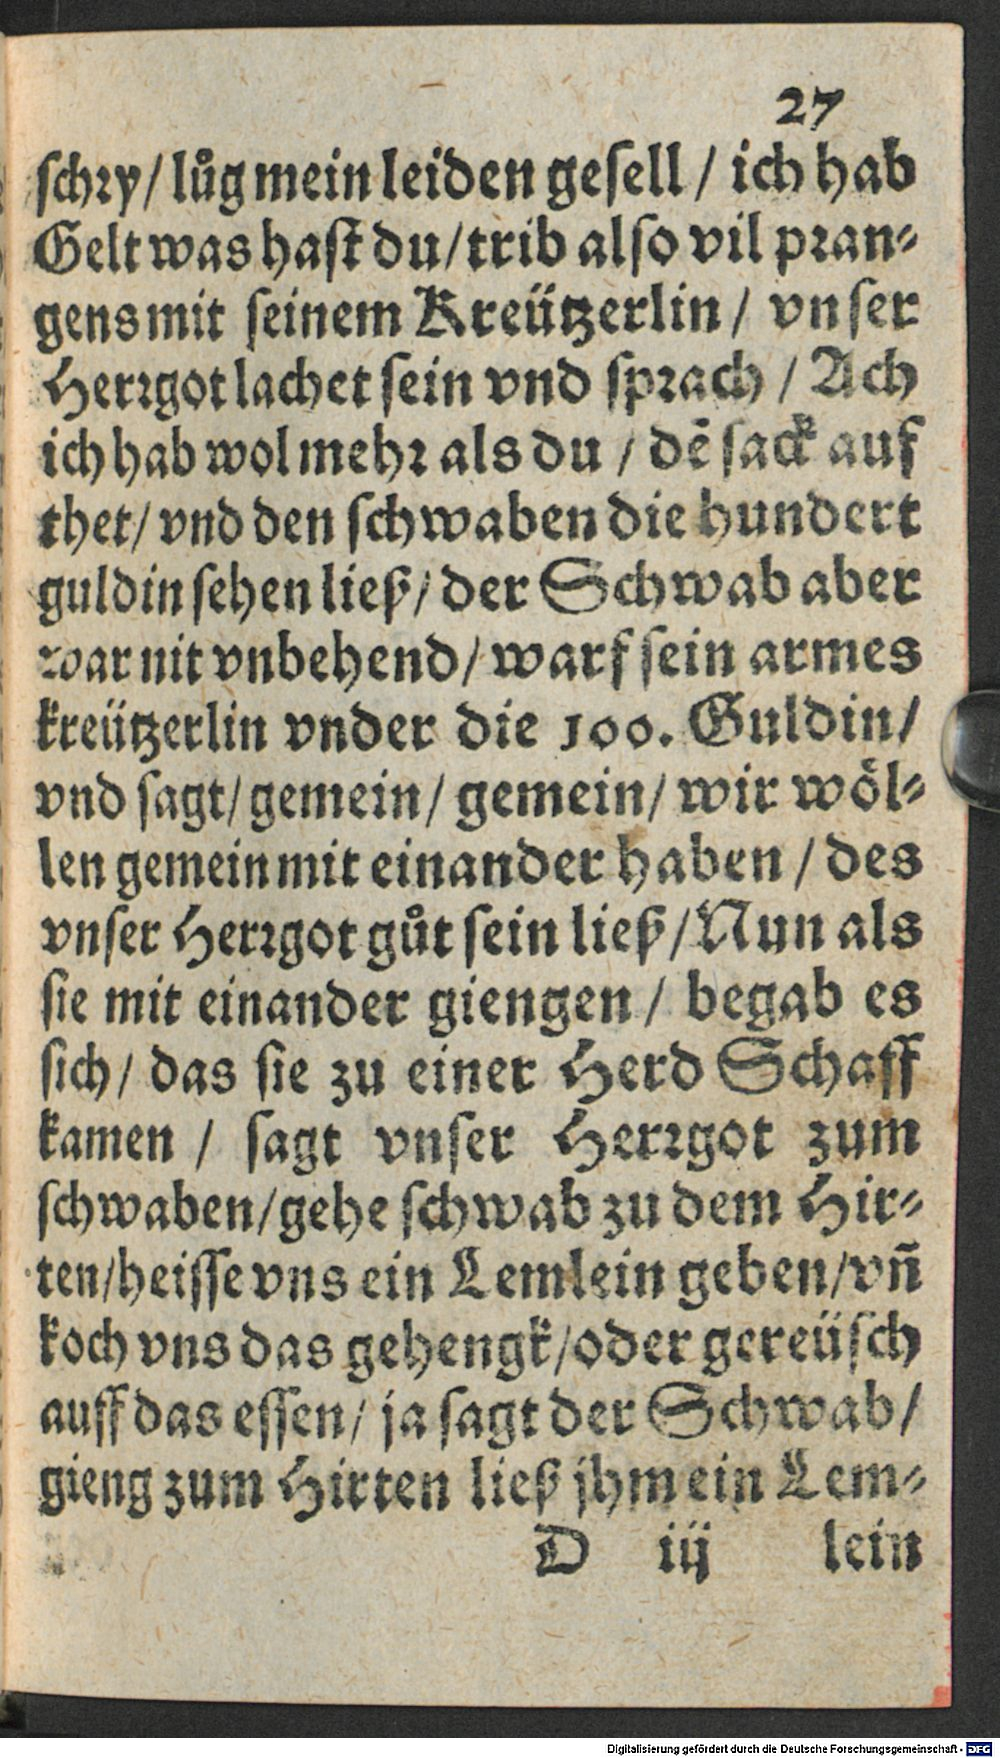 27
schry / luͦg mein leiden gesell / ich hab
Gelt was hast du / trib also vil pran⸗
gens mit seinem Kreützerlin / vnser
Herrgot lachet sein vnd sprach / Ach
ich hab wol mehr als du / dẽ sack auf
thet / vnd den schwaben die hundert
guldin sehen ließ / der Schwab aber
war nit vnbehend / warf sein armes
kreützerlin vnder die 100. Guldin /
vnd sagt / gemein / gemein / wir woͤl⸗
len gemein mit einander haben / des
vnser Herrgot guͦt sein ließ / Nun als
sie mit einander giengen / begab es
sich / das sie zu einer Herd Schaff
kamen / sagt vnser Herrgot zum
schwaben / gehe schwab zu dem Hir⸗
ten / heisse vns ein Lemlein geben / vñ
koch vns das gehengk / oder gereüsch
auff das essen / ja sagt der Schwab /
gieng zum Hirten ließ jhm ein Lem⸗
D iij lein
Digitalisierung gefördert durch die Deutsche Forschungsgemeinschaft - DFG